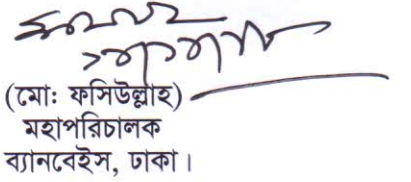 (মোঃ ফসিউল্লাহ)
মহাপরিচালক
ব্যানবেইস, ঢাকা।